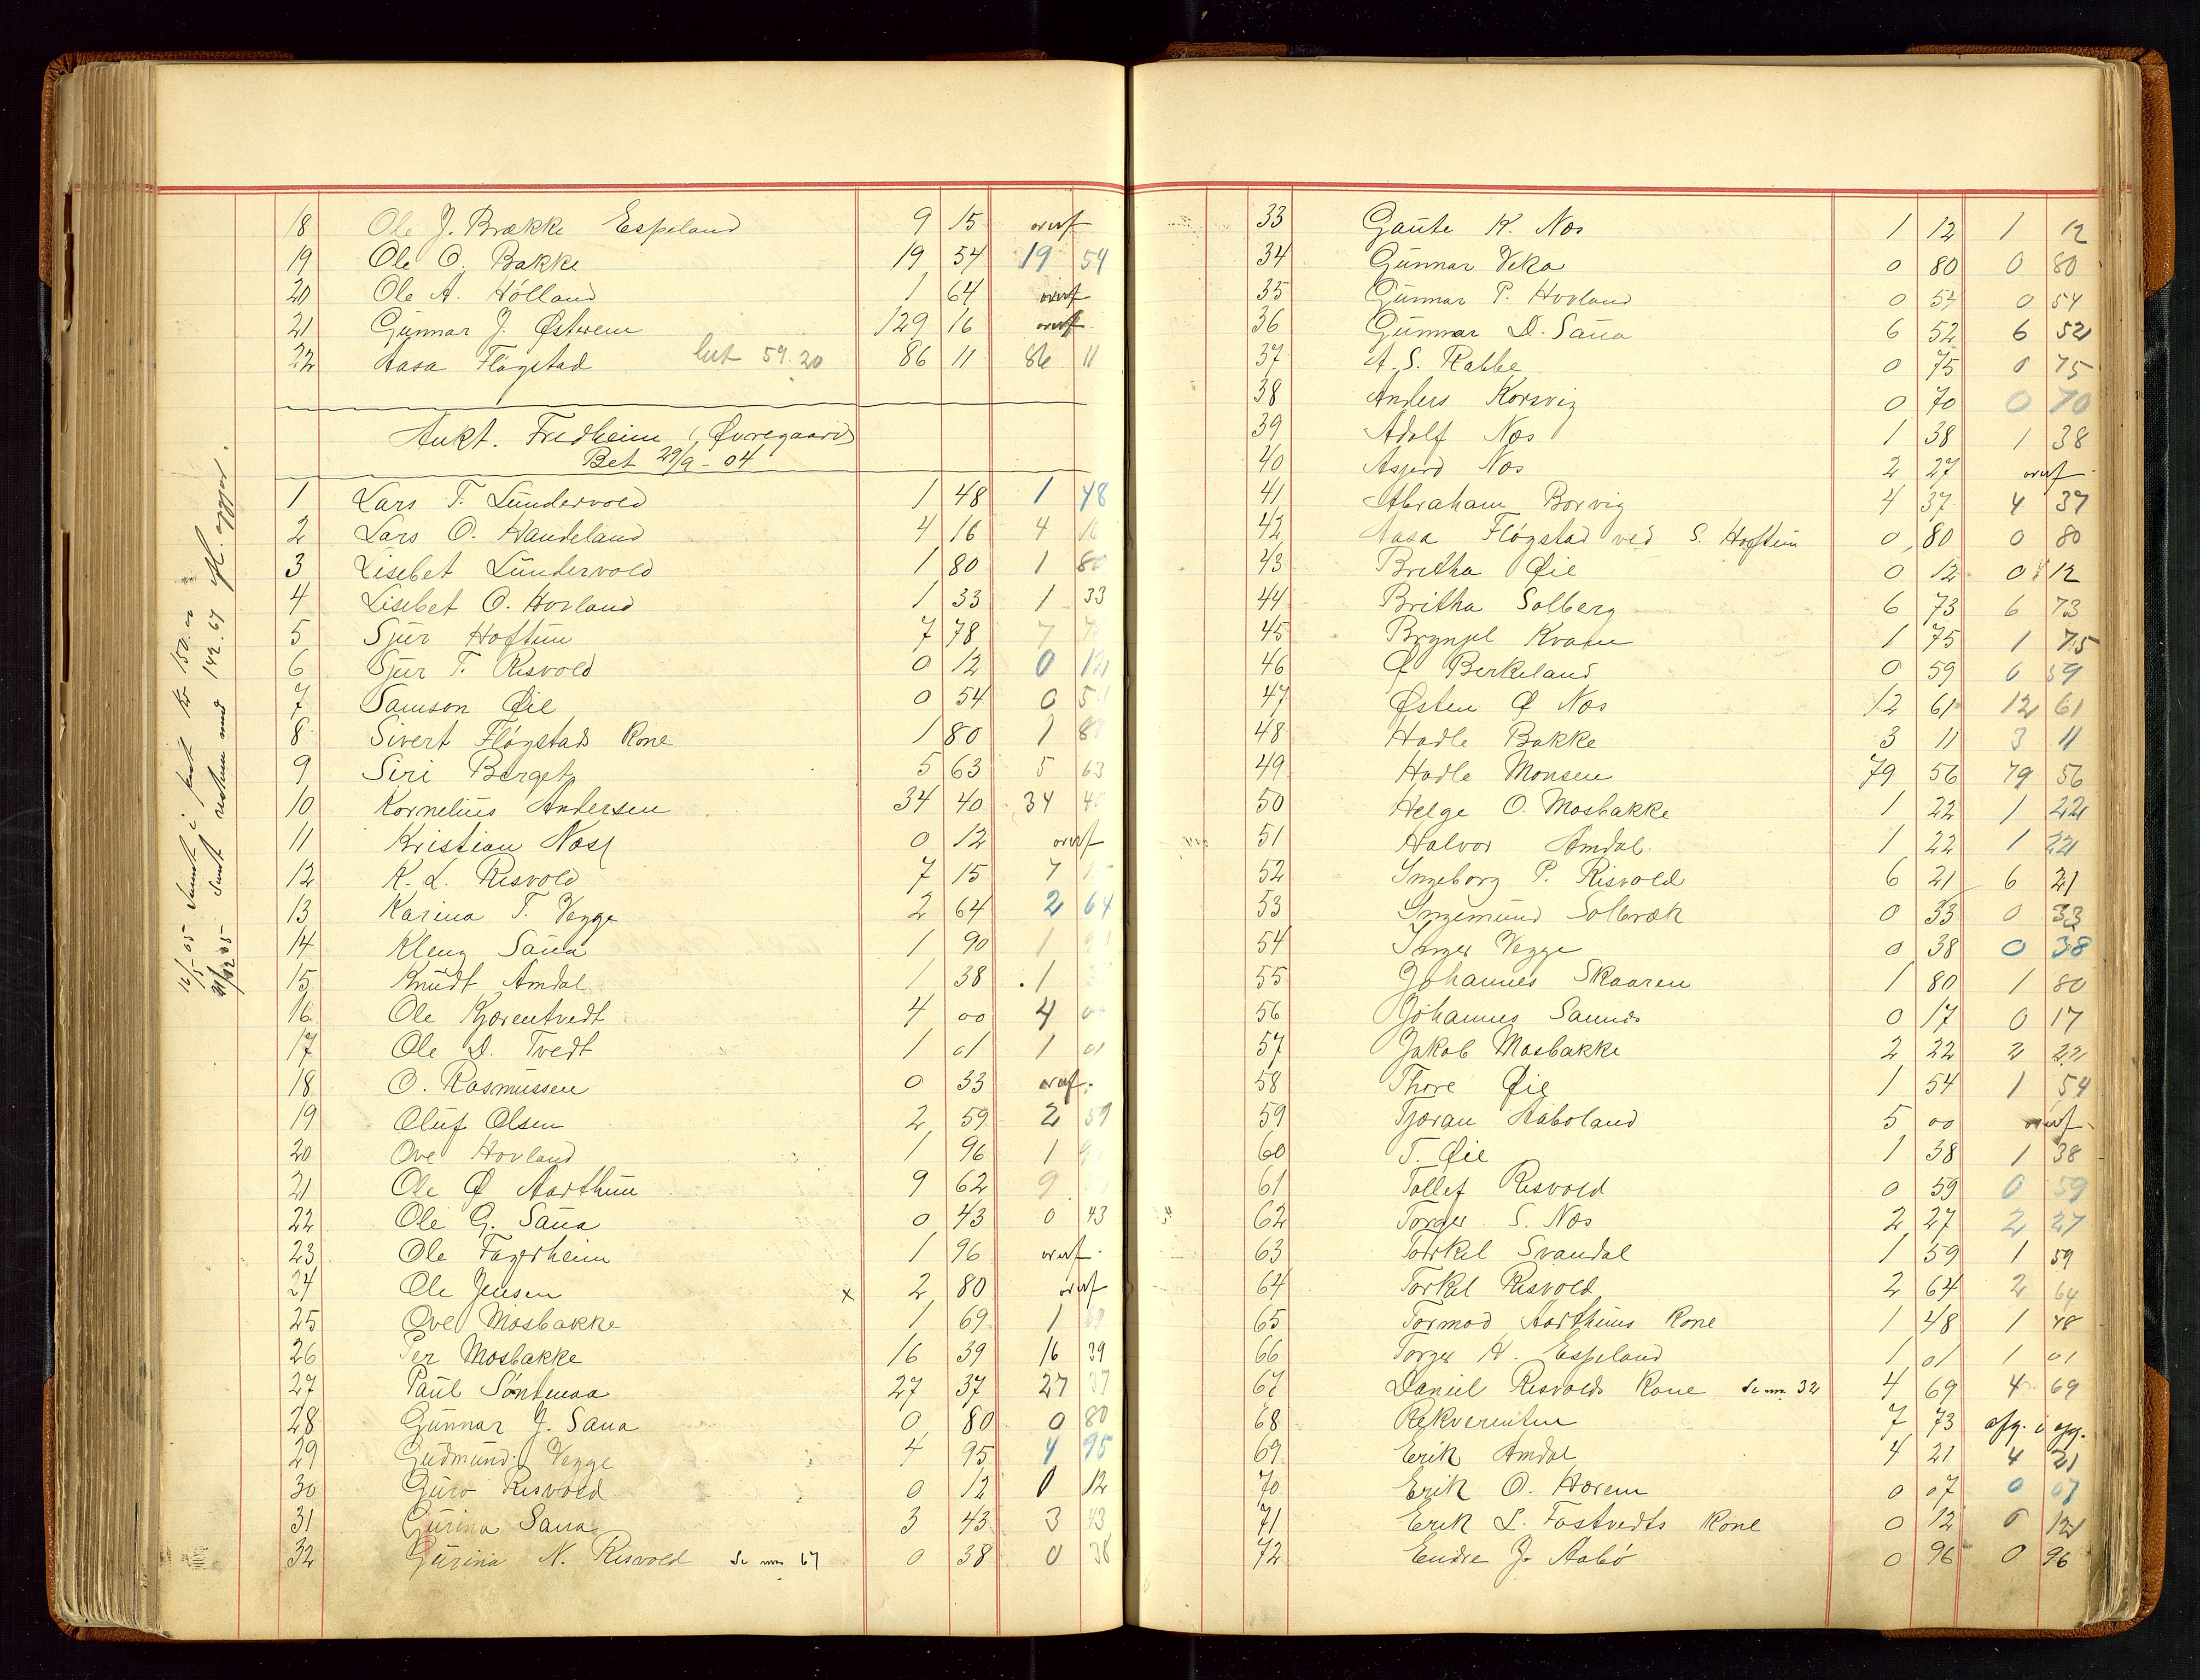 18 Ole J. Brække Espeland 9 15 overf
19 Ole O. Bakke 19 54 19 54
20 Ole A. Hólland 1 64 overf
21 Gunnar J. Østrem 129 16 overf
22 Aasa Flógstad 59.20 86 11 86 11
Aukt. Fredheim, Øvregaard
Bet 29/9 - 04
1 Lars T. Lundervold 1 48 1 48
2 Lars O. Handeland 4 16 4 16
3 Lisebet Lundervold 1 80 1 80
4 Lisebet O. Hovland 1 33 1 33
5 Sjur Hoftun 7 78 7 7
6 Sjur T. Risvold 0 12 0 12
7 Samson Øie 0 54 0 54
8 Sivert Flógstads Kone 1 80 1 80
9 Siri Berget 5 63 5 63
10 Kornelius Andersen 34 40 34 40
11 Kristian Næs 0 12 overf
12 K. L. Risvold 7 15 7 15
13 Karina T. Vegge 2 64 2 64
14 Kleng Saua 1 90 1
15 Knudt Amdal 1 38 1
16 Ole Kjærentvedt 4 00 4 00
17 Ole D. Tvedt 1 01 1 01
18 O. Rasmussen 0 33 overf.
19 Oluf Olsen 2 59 2 59
20 Ove Hovland 1 96 1
21 Ole Ø Aarthun 9 62 9
22 Ole G. Saua 0 43 0 43
23 Ole Fagerheim 1 96 overf.
24 Ole Jensen x 2 80 overf
25 Ove Mosbakke 1 69 1 69
26 Per Mosbakke 16 39 16 39
27 Paul Sóntenaa 27 37 27 37
28 Gunnar J. Saua 0 80 0 80
29 Gudmund Vegge 4 95 4 95
30 Guro Risvold 0 12 0 12
31 Gurina Saua 3 43 3 43
32 Gurina N. Risvold Se nr. 67 0 38 0 38
12/5 05 Sendt i post Kr 150.00
21/12 05 Sendt resten med 142.67
33 Gaute K. Næs 1 12 1 12
34 Gunnar Veka 0 80 0 80
35 Gunnar P. Hovland 0 54 0 54
36 Gunnar D. Saua 6 52 6 52
37 A. S. Rabbe 0 75 0 75
38 Anders Korsvig 0 70 0 70
39 Adolf Næs 1 38 1 38
40 Asjerd Næs 2 27 overf
41 Abraham Borvig 4 37 4 37
42 Aasa Flógstad ved S. Hoftun 0 80 0 80
43 Bretha Øie 0 12 0 12
44 Britha Solberg 6 73 6 73
45 Brynjel Kvam 1 75 1 75
46 Ø Berkeland 0 59 0 59
47 Østen Ø Næs 12 61 12 61
48 Hadle Bakke 3 11 3 11
49 Hadle Monsen 79 56 79 56
50 Helge O. Mosbakke 1 22 1 22
51 Halvor Amdal 1 22 1 22
52 Ingeborg P. Risvold 6 21 6 21
53 Ingemund Solbræk 0 33 0 33
54 Inger Vegge 0 38 0 38
55 Johannes Skaaren 1 80 1 80
56 Johannes Sannds 0 17 0 17
57 Jakob Mosbakke 2 22 2 22
58 Thore Øie 1 54 1 54
59 Tjøran Aaboland 5 00 overf.
60 T. Øie 1 38 1 38
61 Tollef Risvold 0 59 0 59
62 Torger S. Næs 2 27 2 27
63 Torkel Svandal 1 59 1 59
64 Torkel Risvold 2 64 2 64
65 Tormod Aarthuns Kone 1 48 1 48
66 Torger H. Espeland 1 01 1 01
67 Daniel Risvolds Kone Se nr. 32 4 69 4 69
68 Rekverenten 7 73 afg. i opg.
69 Erik Amdal 4 21 4 21
70 Erik O. Horem 0 07 0 07
71 Erik L. Fostvedts Kone 0 12 0 12
72 Endre J. Aabó 0 96 0 96